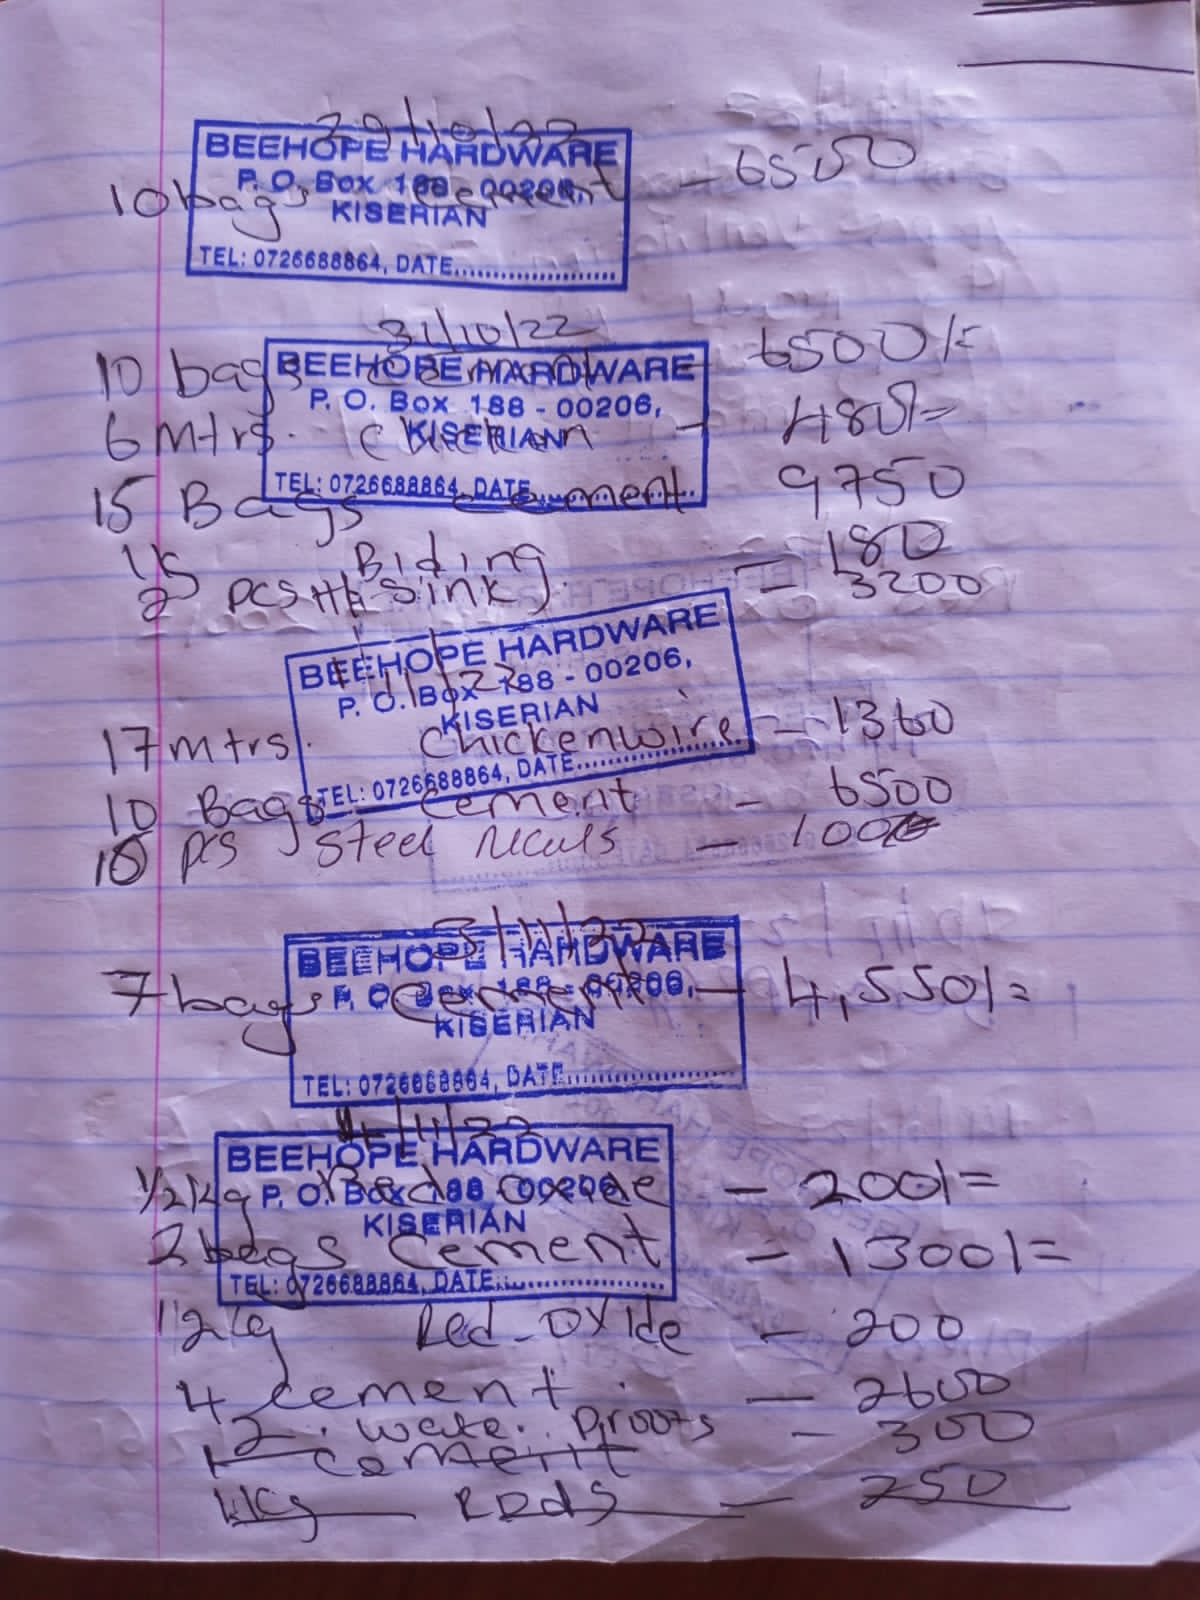 29/10/22
BEEHOPE HARDWARE
P. O. Box 188 - 00206,
10 bags cement - 6500
KISERIAN
TEL: 0726688864, DATE
31/10/22
10 bags cement 6500/=
BEEHOPE HARDWARE
P. O. Box 188 - 00206,
6 mtrs. chicken - 480/=
KISERIAN
TEL: 0726688864, DATE
15 Bags cement 9750
Biding - 180
2 pcs sink - 3200
BEEHOPE HARDWARE
P. O. Box 188 - 00206,
KISERIAN
17 mtrs. Chickenwire - 1360
TEL: 0726688864, DATE
10 Bags cement - 6500
10 pcs Steel - 1000
3/11/22
BEEHOPE HARDWARE
7 bags cement - 4,550/=
P. O. Box 188 - 00206,
KISERIAN
TEL: 0726688864, DATE
4/11/22
BEEHOPE HARDWARE
1/2 kg Red oxide - 200/=
P. O. Box 188 - 00206,
KISERIAN
2 bags Cement - 1300/=
TEL: 0726688864, DATE
1/2 kg Red-oxide - 200
4 cement. - 2600
2. wate. proofs - 300
1 cement
- 250